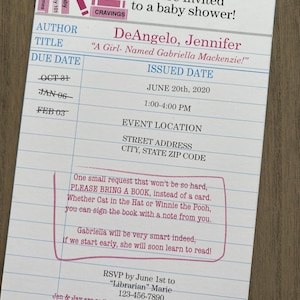 CRAVINGS
invited
to a baby shower!
AUTHOR
DeAngelo, Jennifer
TITLE
"A Girl- Named Gabriella Mackenzie!"
DUE DATE
ISSUED DATE
OCT 31
JUNE 20th, 2020
JAN 06
1:00-4:00 PM
FEB 03
EVENT LOCATION
STREET ADDRESS
CITY, STATE ZIP CODE
One small request that won't be so hard,
PLEASE BRING A BOOK, instead of a card.
Whether Cat in the Hat or Winnie the Pooh,
you can sign the book with a note from you.
Gabriella will be very smart indeed,
if we start early, she will soon learn to read!
RSVP by June 1st to
"Librarian" Marie
123-456-7890
Jen & Jay